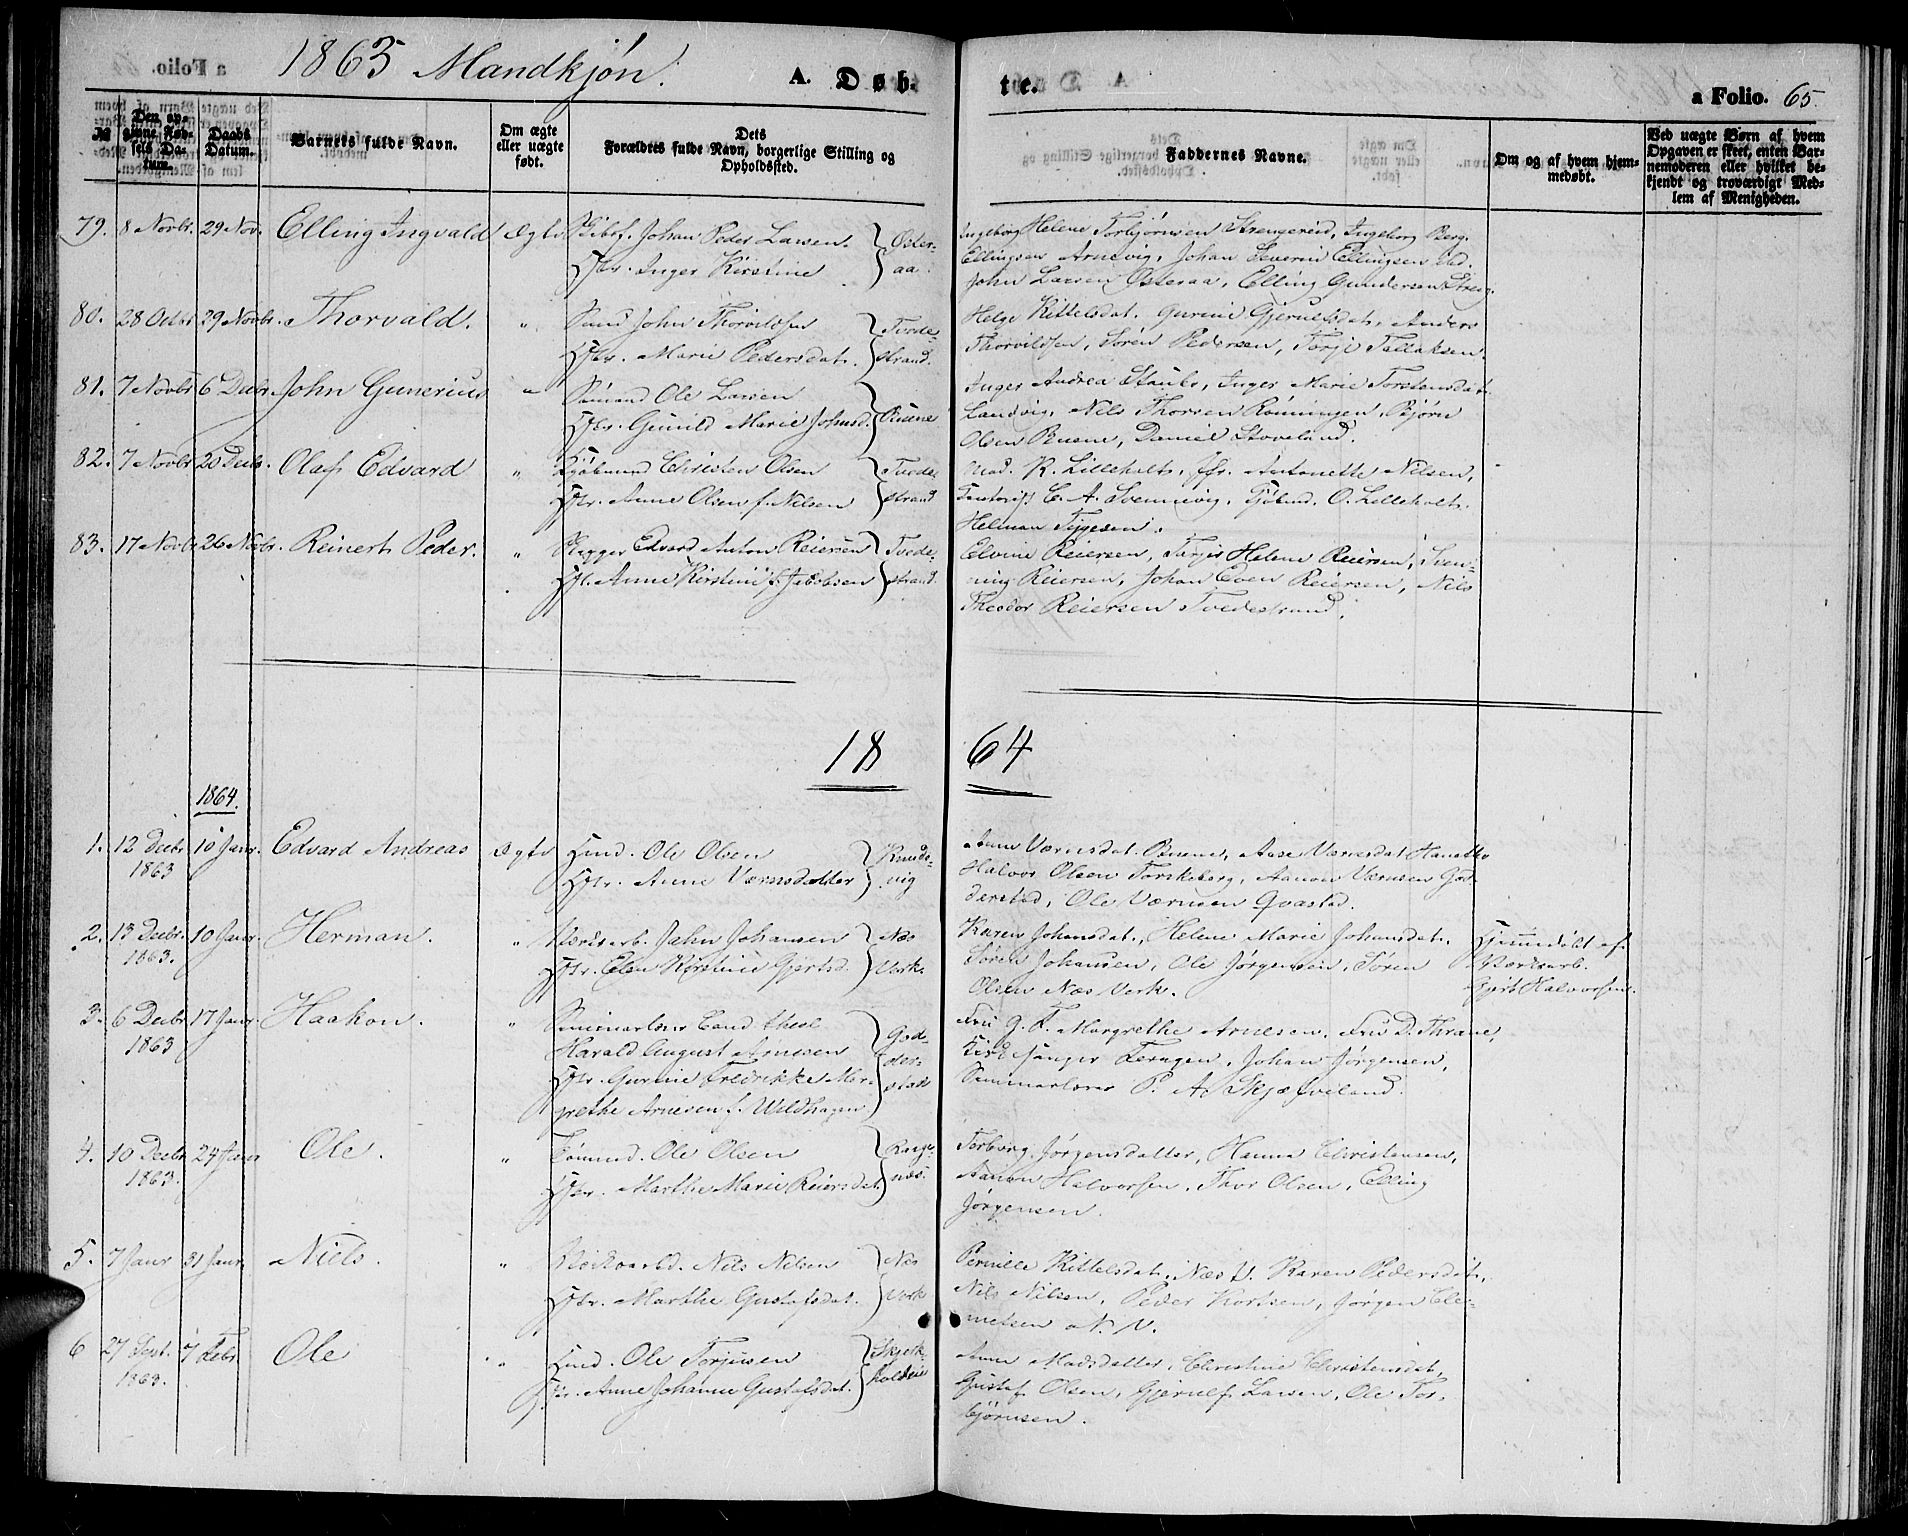 1863 Mandkjøn.
A. Døb-
te.
a Folio. 65.
№
Den op-
givne Fød-
sels Da-
tum.
Daabs
Datum.
Barnets fulde Navn.
Om ægte
eller uægte
født.
Dets
Forældres fulde Navn, borgerlige Stilling og
Opholdssted.
Faddernes Navne.
Om og af hvem hjem-
medøbt.
Ved uægte Børn af hvem
Opgaven er skeet, enten Bar-
nemoderen eller hvilket be-
kjendt og troværdigt Med-
lem af Menigheden.
79. 8 Novbr. 29 Nov. Elling Ingvald Ægte Skibsf. Johan Peder Larsen.
Hstr. Inger Kirstine
Øster-
aa.
Ingeborg Helene Torbjørnsen Strengereid, Ingeborg Berg.
Ellingsen Arnevig, Johan Severin Ellingsen ibd.
John Larsen Østeraa, Elling Gundersen Streng.
80. 28 Octbr 29 Novbr. Thorvald. " John Thorvildsen
Hstr. Marie Pedersdat.
Tvede-
strand.
Helge Kittelsdat. Gurine Gjerulfsdat, Anders
Thorvildsen, Søren Pedersen, Terje Tellaksen.
81. 7 Novbr 6 Decbr John Gunerius " Sømand Ole Larsen
Hstr. Gunild Marie Johnsd.
Buene
Inger Andrea Staubø, Inger Marie Torstensdat
Landvig, Nils Thorsen Rømingen, Bjørn
Olsen Buene, Daniel Stoveland.
82. 7 Novbr 20 Decbr. Olaf Edvard " Kjøbmand Christen Olsen
Hstr. Anne Olsen f. Nilsen
Tvede
strand
Mad. K. Lilleholt, Jfr. Antonette Nilsen,
C. A. Svennevig, Kjøbmd. O. Lilleholt.
Helman Tygesen.
83. 17 Novbr 26 Novbr. Reinert Peder. " Skipper Edvard Anton Reiersen
Hst. Anne Kirstine f. Jacobsen
Tvede-
strand.
Elvine Reiersen, Terjis Helene Reiersen, Sven-
ning Reiersen, Johan Even Reiersen, Nils
Theodor Reiersen Tvedestrand.
18 64
1864.
1. 12 Decbr
1863
10 Janr. Edvard Andreas Ægte Husmd. Ole Olsen
Hstr. Anne Værnsdatter
Knuds-
vig
Anne Værnsdat. Buene, Aase Værnsdat Hanetho
Halvor Olsen Torskeberg, Aanon Værnsen God-
derstad, Ole Værnsen Qvastad.
2. 13 Decbr.
1863.
10 Janr. Herman. " Værksarb. Jahn Johansen
Hstr. Elen Kirstine Gjertsd.
Næs
Værk.
Karen Johansdat., Helene Marie Johansdat.
Søren Johansen, Ole Jørgensen, Søren
Olsen Næs Verk.
Hjemmedøbt af
Værksarb.
Gjert Halvorsen.
3. 6 Decbr
1863
17 Janr. Haakon. " Seminarlærer Cand. theol
Harald August Arnesen
Hstr. Gurine Fredrikke Mar-
grethe Arnesen f. Wildhagen
God-
der-
stad
Fru G. F. Margrethe Arnesen. Fru D. Thrane,
Kirkesanger Teragen, Johan Jørgensen,
Seminarlærer P. A. Skjæfveland.
4. 10 Decbr
1863.
24 Janr Ole. " Tømmd. Ole Olsen
Hstr. Marthe Marie Reiersdat.
næs.
Torborg Jørgensdatter, Hanna Christensen,
Aanon Halvorsen, Thor Olsen, Elling
Jørgensen.
5. 7 Janr 31 Janr. Niels. " Nils Nilsen
Hstr. Marthe Gustafsdat.
Næs
Verk
Pernille Kittelsdat, Næs V. Karen Pedersdat,
Nils Nilsen, Peder Kortsen, Jørgen Cle-
metsen N. V.
6 27 Sept.
1863.
7 Febr. Ole " Husmd. Ole Terjusen
Hstr. Anne Johanne Gustafsdat.
Skjerk-
holdtei
Anne Madsdatter, Christine Christensdat,
Gustaf Olsen, Gjerulf Larsen, Ole Tor-
bjørnsen.